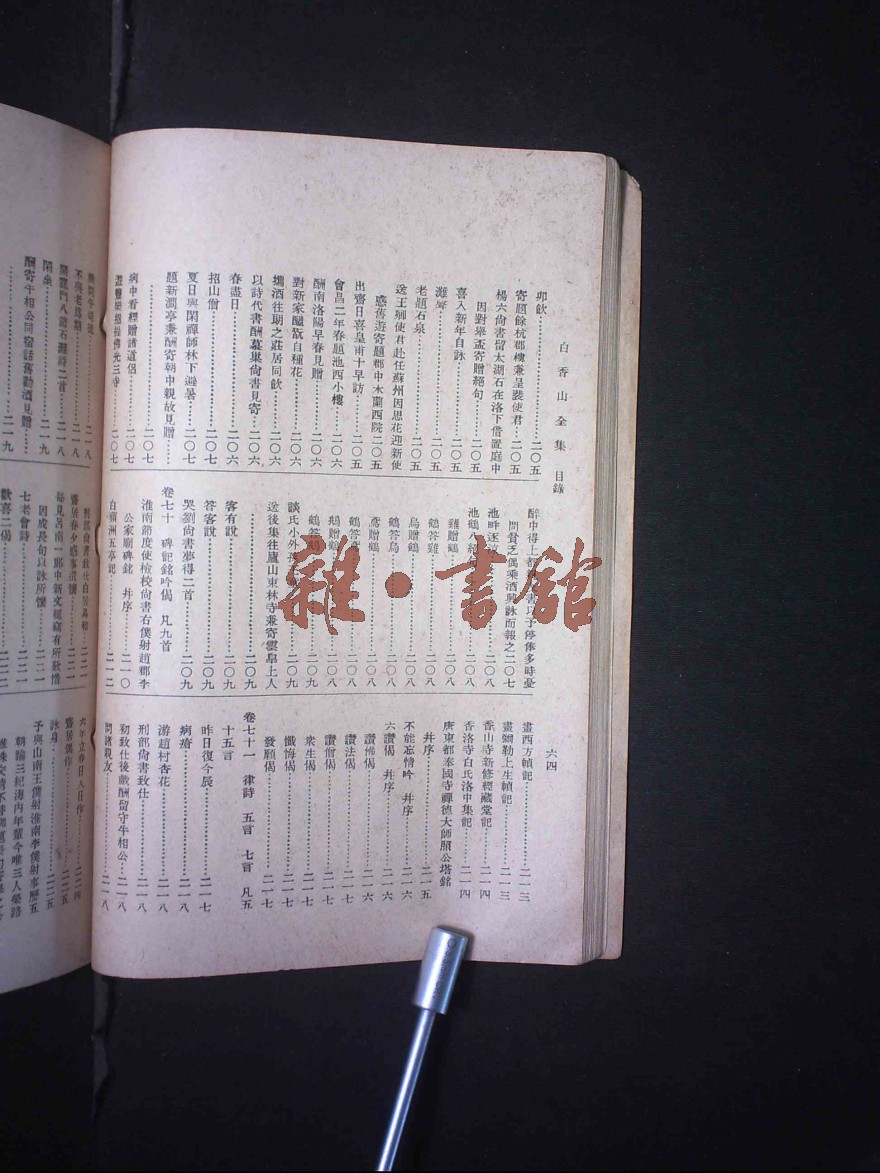 白香山全集 目錄
六四
卯飲……二〇五
寄題餘杭郡樓兼呈裴使君……二〇五
楊六尙書留太湖石在洛下借置庭中
因對舉盃寄贈絕句……二〇五
喜入新年自詠……二〇五
灘聲……二〇五
老題石泉……二〇五
送王卿使君赴任蘇州因思花迎新使
感舊遊寄題郡中木蘭西院……二〇五
出齋日喜皇甫十早訪……二〇五
會昌二年春題池西小樓……二〇六
酬南洛陽早春見贈……二〇六
對新家醞翫自種花……二〇六
攜酒往朗之莊居同飲……二〇六
以詩代書酬慕巢尙書見寄……二〇六
春盡日……二〇六
招山僧……二〇七
夏日與閑禪師林下避暑……二〇七
題新澗亭兼酬寄朝中親故見贈……
……二〇七
病中看經贈諸道侶……二〇七
遊豐樂招提佛光三寺……二〇七
醉中得上都親友書以予停俸多時憂
問貧乏偶乘酒興詠而報之 二〇七
池畔逐涼……二〇八
池鶴八絕句……二〇八
雞贈鶴……二〇八
鶴答雞……二〇八
烏贈鶴……二〇八
鶴答烏……二〇八
鳶贈鶴……二〇八
鶴答鳶……二〇八
鵝贈鶴……二〇八
鶴答鵝……二〇八
談氏小外孫……二〇九
送後集往廬山東林寺兼寄雲皐上人
……二〇九
客有說……二〇九
答客說……二〇九
哭劉尙書夢得二首……二〇九
卷七十 碑記銘吟偈 凡九首
淮南節度使檢校尙書右僕射趙郡李
公家廟碑銘 幷序……二一〇
白蘋洲五亭記……二一二
畫西方幀記……二一三
畫彌勒上生幀記……二一三
香山寺新修經藏堂記……二一四
香洛寺白氏洛中集記……二一四
唐東都奉國寺禪德大師照公塔銘
幷序……二一五
不能忘情吟 幷序……二一六
六讚偈 幷序……二一六
讚佛偈……二一七
讚法偈……二一七
讚僧偈……二一七
衆生偈……二一七
懺悔偈……二一七
發願偈……二一七
卷七十一 律詩 五言 七言 凡五
十五言
昨日復今辰……二一七
病瘡……二一八
游趙村杏花……二一八
刑部尙書致仕……二一八
初致仕後戲酬留守牛相公……二一八
問諸親友……二一八
不與老爲期……二一八
開龍門八節石灘詩二首……二一八
閑坐……二一九
酬寄牛相公同宿話舊勸酒見贈……
……二一九
刑部尙書致仕
齋居春夕感事遣懷……二二一
每見呂南二郎中新文輒竊有所歎惜
因成長句以詠所懷……二二一
七老會詩……二二一
歡喜二偈……二二二
六年立春日人日作……二二四
齋居偶作……二二五
詠身……二二五
予與山南王僕射淮南李僕射事歷五
朝踰三紀海內年輩今唯三人榮路
雜·書館